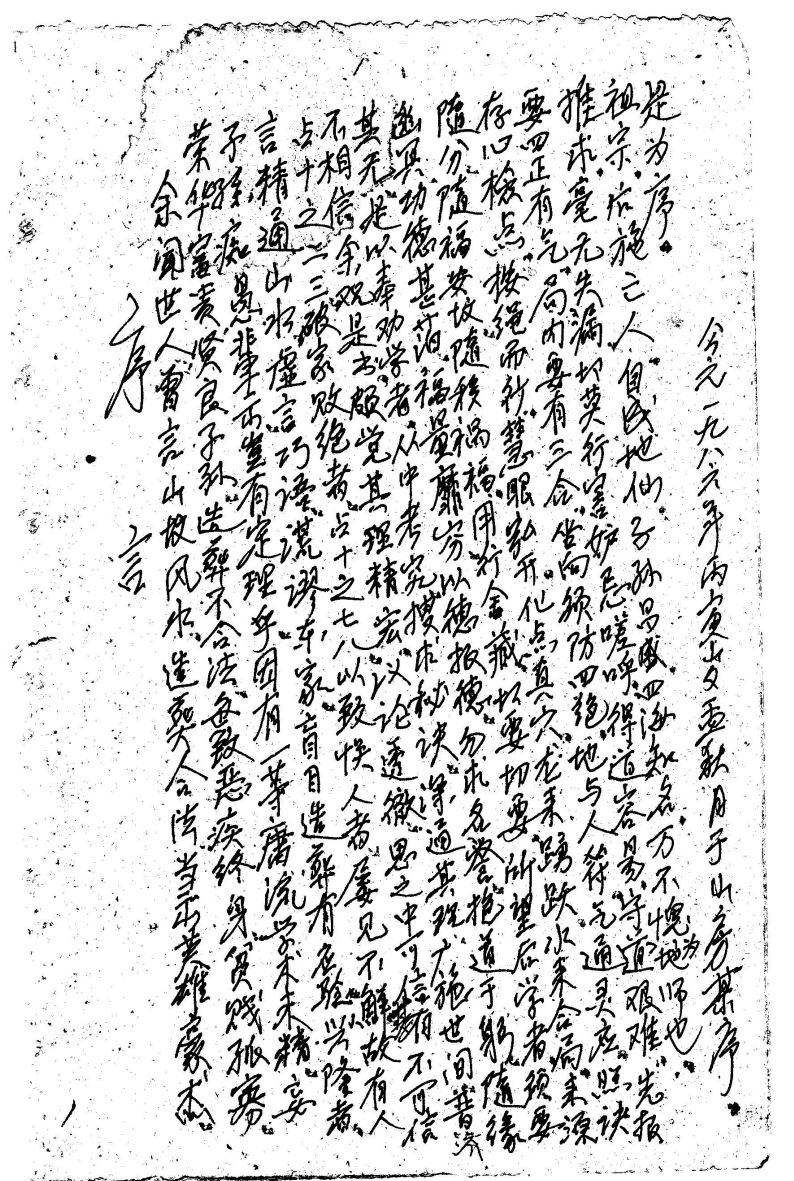 序言
余闻世人尝言山坟风水造葬合法当出英雄豪杰
荣华富贵贤良子孙造葬不合法每致恶疾终身贫贱孤寡
子孙痴愚辈出岂有定理乎因有一等庸流学术未精妄
言精通山水虚言巧语谎谬东家盲目造葬有应验兴隆者
占十之二三破家败绝者占十之七八以致误人者屡见不鲜故有人
不相信余观是书颇觉其理精宏议论透徹思之中可信有不可信
其无是以奉劝学者从中考究搜求秘诀深通其理广施世间普济
其功德甚泊福量靡穷以德报德勿求名誉抱道于躬随缘
随分随福安坟随积祸福用行舍藏切要切要所望后学者须要
存心检点按绳而针慧眼弘开化点真穴龙来踴跃水来合局来源
要四正有气局内要有三合坐向须防四绝地与人符气通灵应照诀
推求毫无失漏切莫行害妒忌嗟呼得道容易守道艰难先报
祖宗后施亡人自成地仙子孙昌盛四海知名万不愧为地师也
是为序
今元一九八六年丙寅岁孟秋月于山房某序